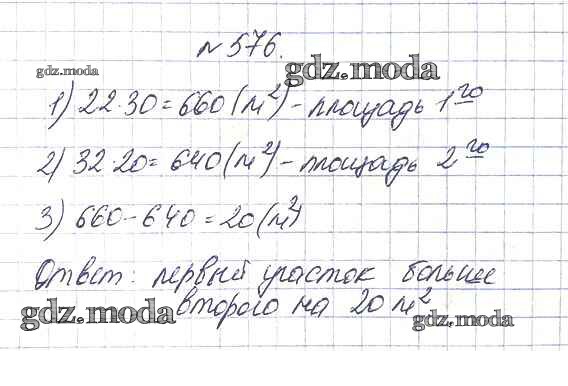 № 576.
gdz.moda
gdz.moda
1) 22·30=660(м²)-площадь 1го
2) 32·20=640(м²)-площадь 2го
3) 660-640=20(м²)
Ответ: первый участок больше
второго на 20 м²
gdz.moda
gdz.moda